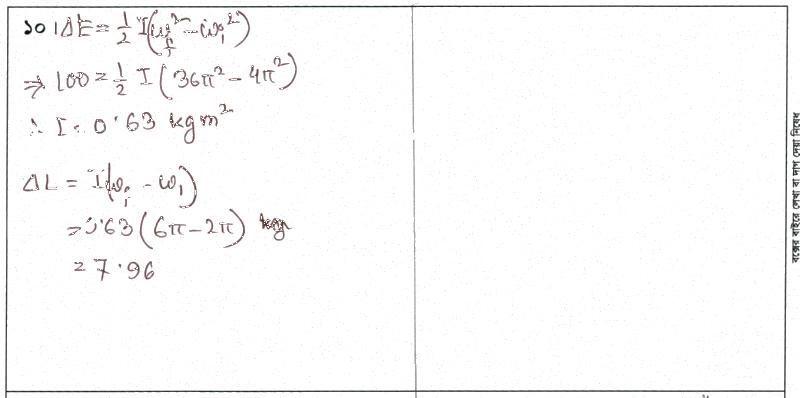 ১০। ΔE = 1/2 I(ω_f² - ω_i²)
⇒ 100 = 1/2 I (36π² - 4π²)
∴ I = 0.63 kgm²
ΔL = I(ω_f - ω_i)
= 0.63 (6π - 2π)
= 7.96
বক্সের বাইরে লেখা বা দাগ দেয়া নিষেধ